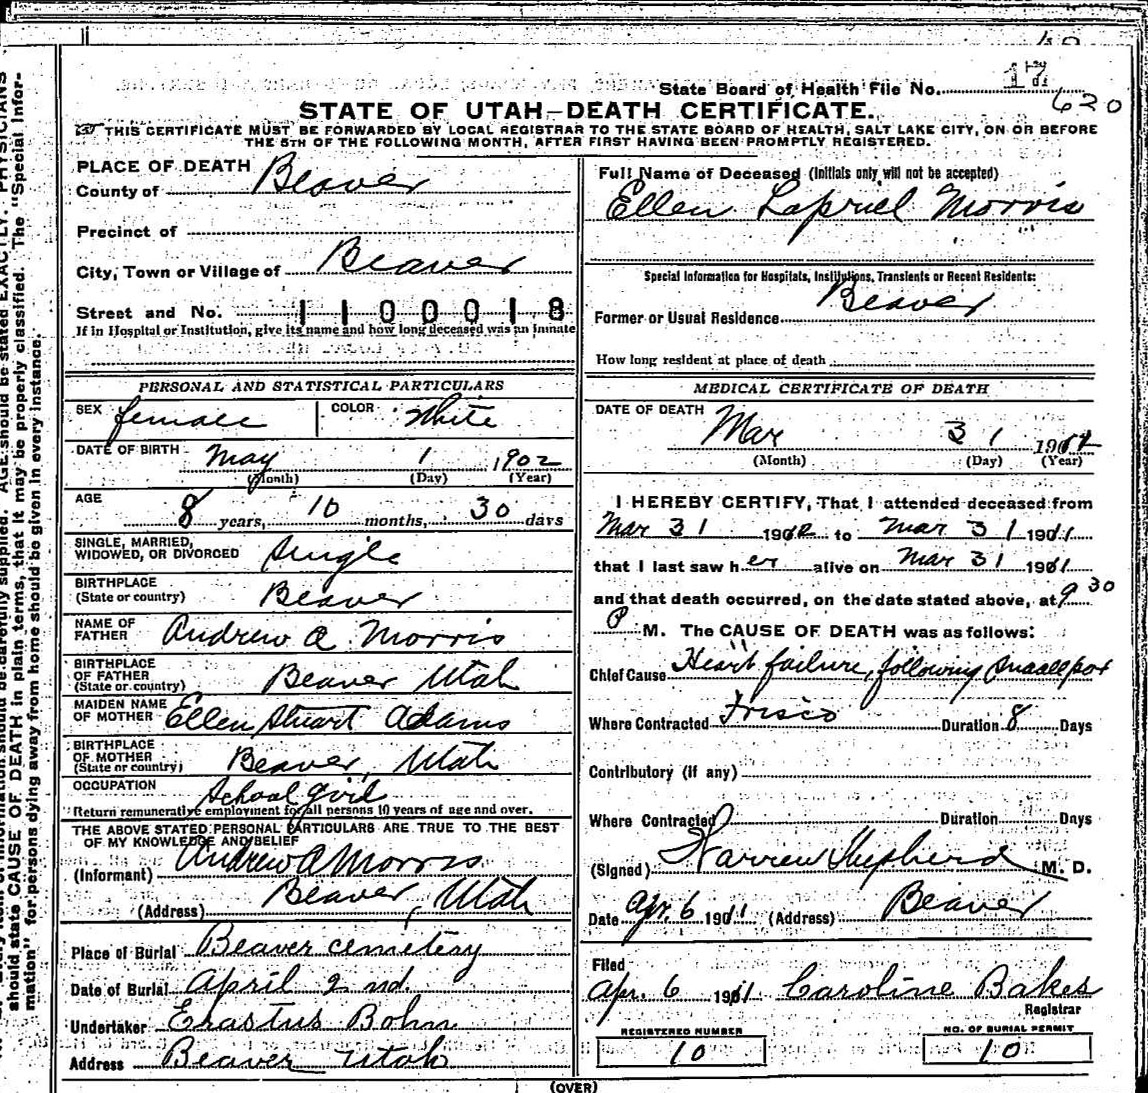 State Board of Health File No. 17
620
STATE OF UTAH—DEATH CERTIFICATE.
THIS CERTIFICATE MUST BE FORWARDED BY LOCAL REGISTRAR TO THE STATE BOARD OF HEALTH, SALT LAKE CITY, ON OR BEFORE
THE 5TH OF THE FOLLOWING MONTH, AFTER FIRST HAVING BEEN PROMPTLY REGISTERED.
PLACE OF DEATH
County of Beaver
Precinct of
City, Town or Village of Beaver
Street and No. 1100018
If in Hospital or Institution, give its name and how long deceased was an inmate
Full Name of Deceased (Initials only will not be accepted)
Ellen Lapriel Morris
Special Information for Hospitals, Institutions, Transients or Recent Residents:
Former or Usual Residence Beaver
How long resident at place of death
PERSONAL AND STATISTICAL PARTICULARS
SEX female COLOR White
DATE OF BIRTH May 1 1902
(Month) (Day) (Year)
AGE
8 years, 10 months, 30 days
SINGLE, MARRIED,
WIDOWED, OR DIVORCED Single
BIRTHPLACE
(State or country) Beaver
NAME OF
FATHER Andrew A Morris
BIRTHPLACE
OF FATHER
(State or country) Beaver Utah
MAIDEN NAME
OF MOTHER Ellen Stuart Adams
BIRTHPLACE
OF MOTHER
(State or country) Beaver, Utah
OCCUPATION School girl
Return remunerative employment for all persons 10 years of age and over.
THE ABOVE STATED PERSONAL PARTICULARS ARE TRUE TO THE BEST
OF MY KNOWLEDGE AND BELIEF
(Informant) Andrew A Morris
(Address) Beaver, Utah
Place of Burial Beaver cemetery
Date of Burial April 2nd.
Undertaker Erastus Bohn
Address Beaver Utah
MEDICAL CERTIFICATE OF DEATH
DATE OF DEATH Mar 31
(Month) (Day) (Year)
I HEREBY CERTIFY, That I attended deceased from
Mar 31 to Mar 31 1911
that I last saw her alive on Mar 31 1911
and that death occurred, on the date stated above, at 9 30
P M. The CAUSE OF DEATH was as follows:
Chief Cause Heart failure, following Smallpox
Where Contracted Frisco Duration 8 Days
Contributory (if any)
Where Contracted Duration Days
(Signed) Warren Shepherd M. D.
Date Apr. 6 1911 (Address) Beaver
Filed
Apr. 6 1911 Caroline Bakes
Registrar
REGISTERED NUMBER
10
NO. OF BURIAL PERMIT
10
(OVER)
AGE should be stated EXACTLY. PHYSICIANS
should state CAUSE OF DEATH in plain terms, that it may be properly classified. The "Special Infor-
mation" for persons dying away from home should be given in every instance.